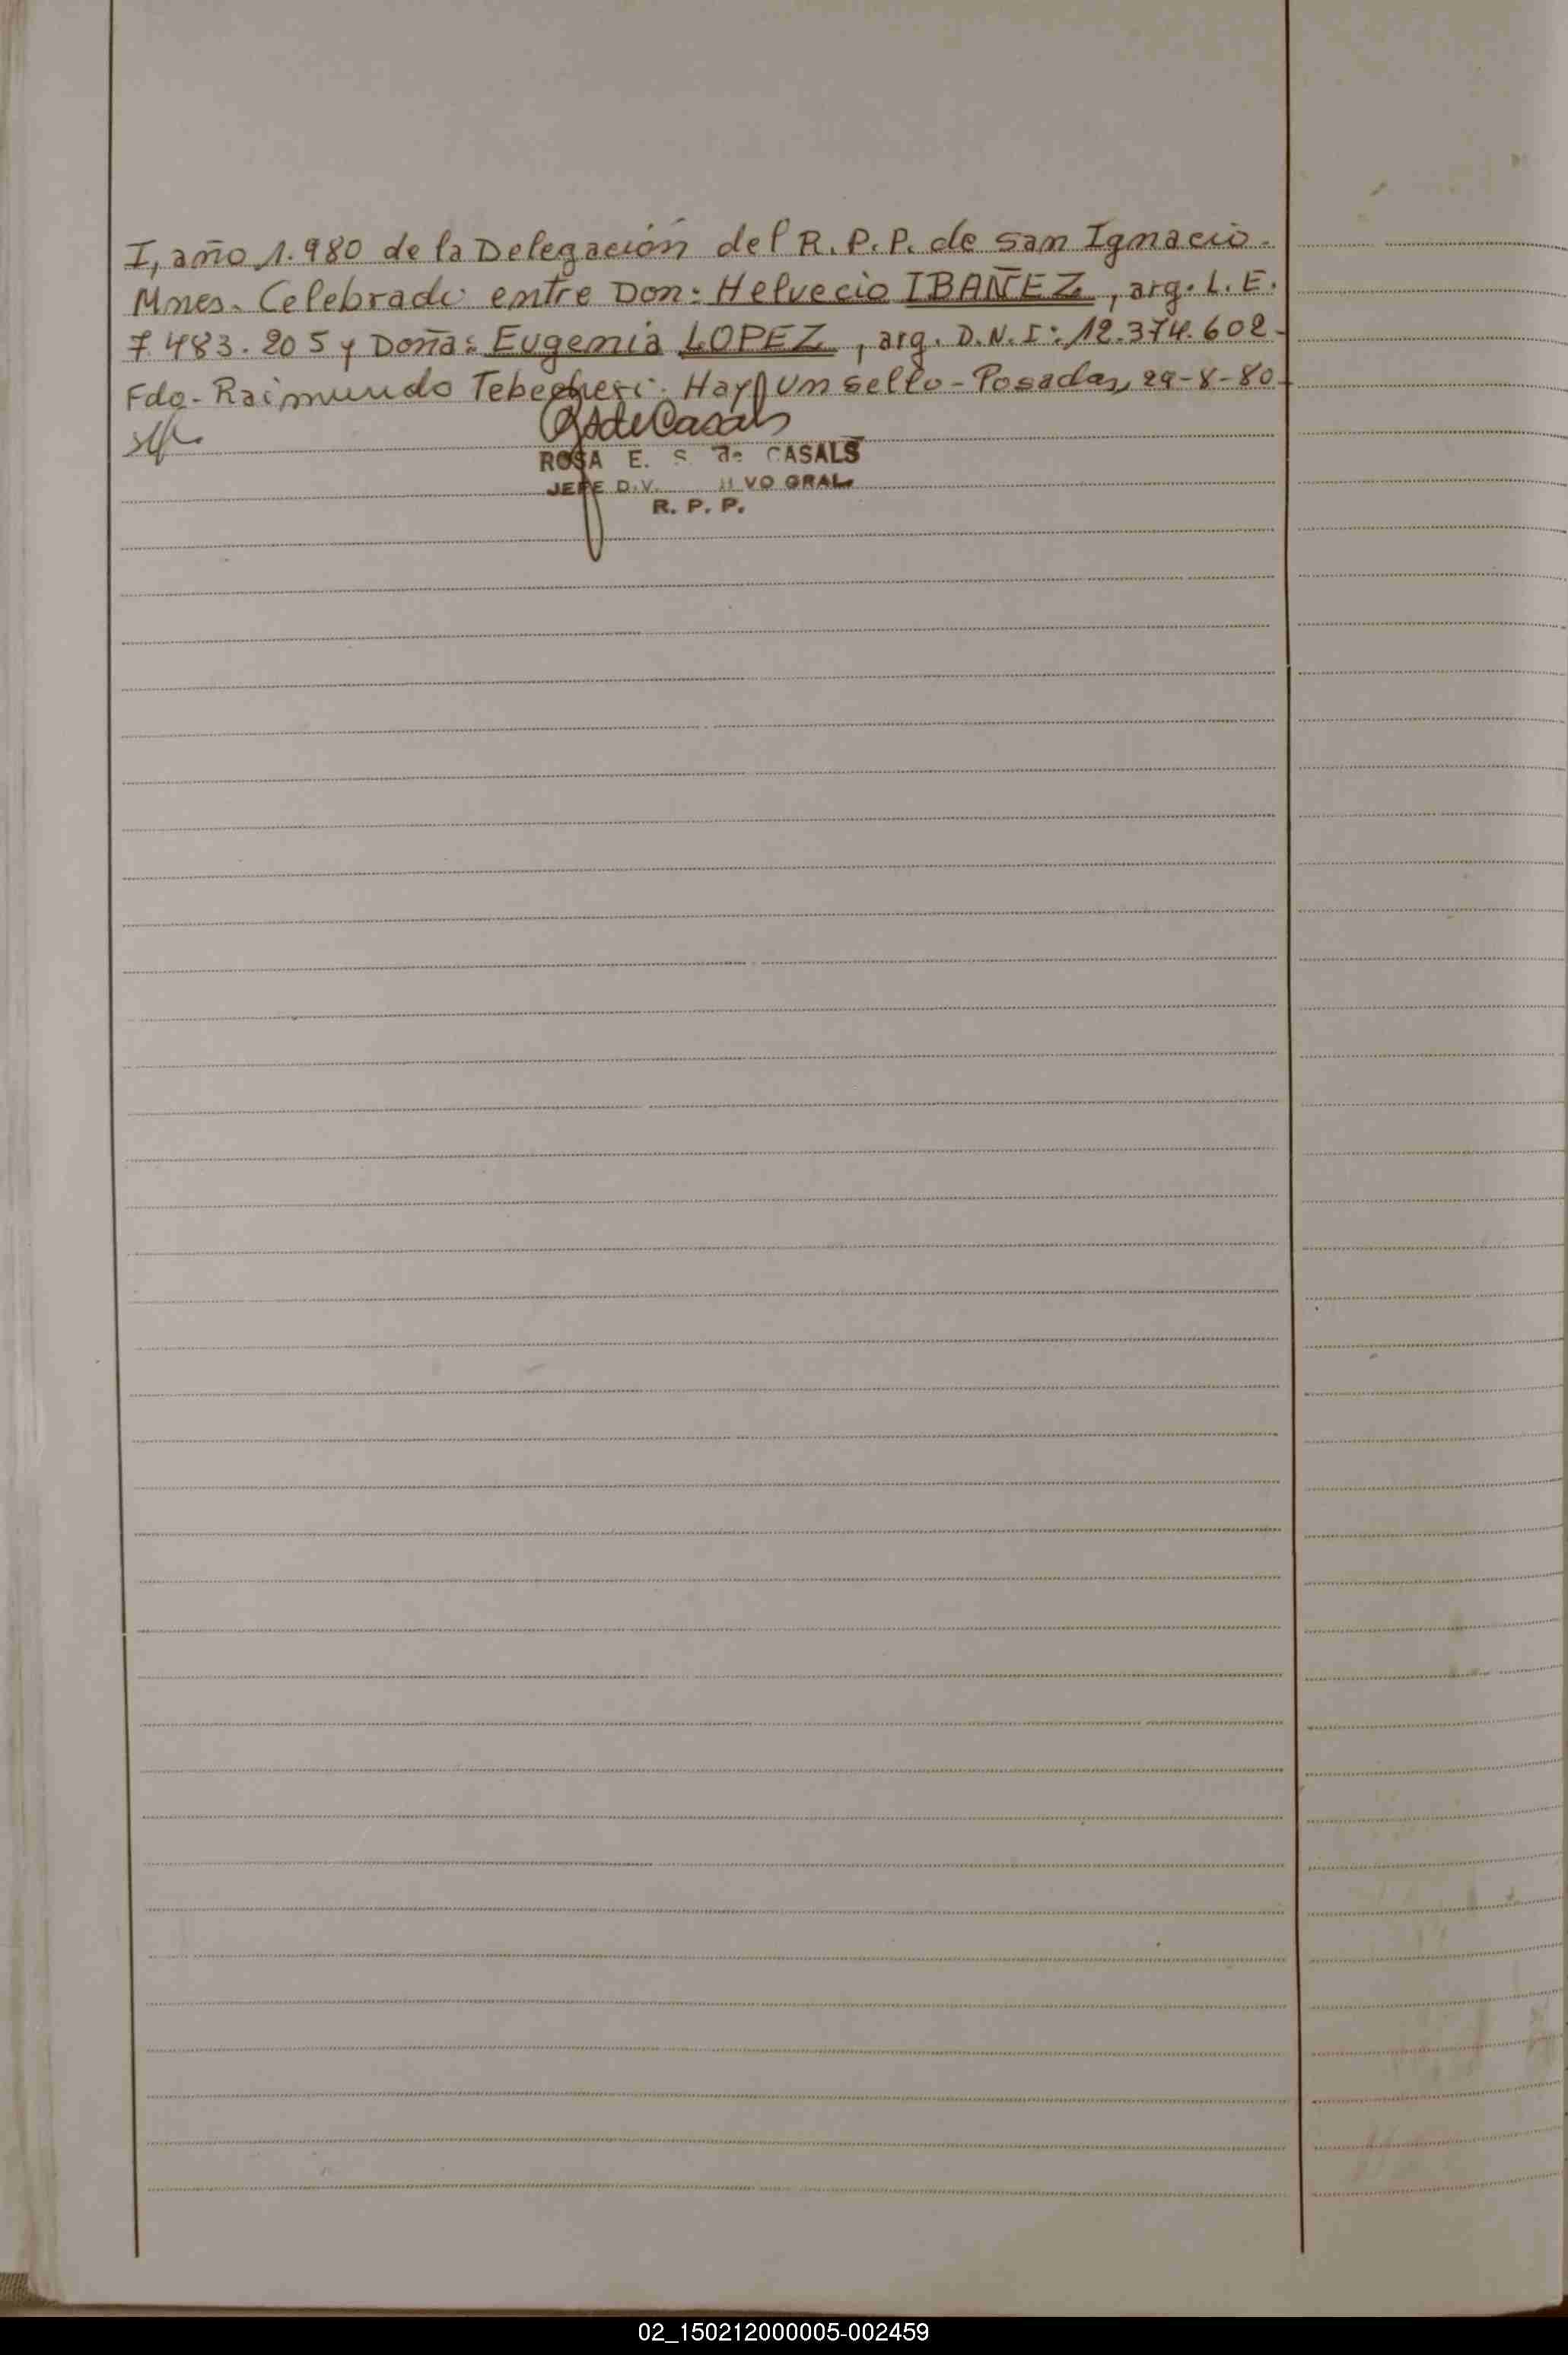 I, año 1.980 de la Delegación del R.P.P. de San Ignacio.
Mnes. Celebrado entre Don: Helvecio IBAÑEZ, arg. L.E.
7.483.205 y Doña: Eugenia LOPEZ, arg. D.N.I: 12.374.602-
Fdo. Raimundo Hay un sello - Posadas, 29-8-80
ROSA E. S. de CASALS
JEFE DIV. VO GRAL.
R. P. P.
02_150212000005-002459